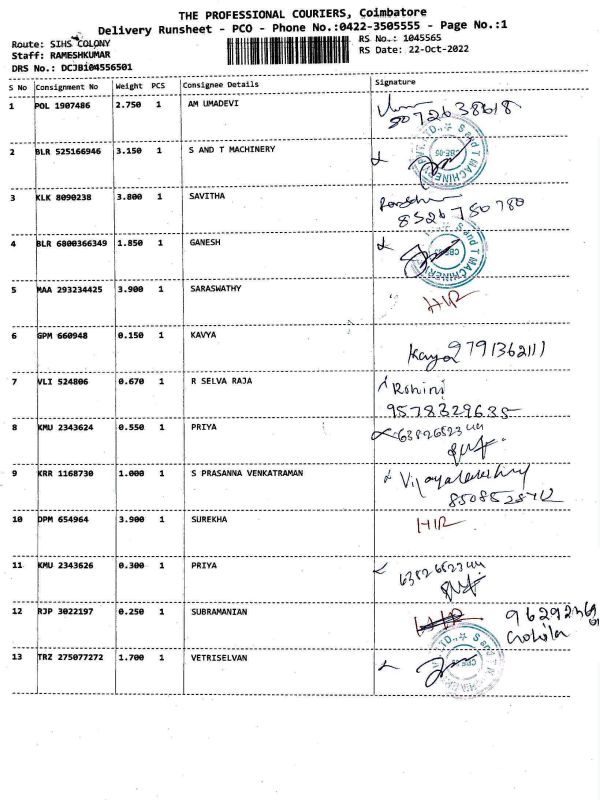 THE PROFESSIONAL COURIERS, Coimbatore
Delivery Runsheet - PCO - Phone No.:0422-3505555 - Page No.:1
Route: SIHS COLONY
Staff: RAMESHKUMAR
DRS No.: DCJBi04556501
RS No.: 1045565
RS Date: 22-Oct-2022
S No Consignment No Weight PCS Consignee Details Signature
1 POL 1907486 2.750 1 AM UMADEVI
2 BLR 525166946 3.150 1 S AND T MACHINERY
3 KLK 8090238 3.800 1 SAVITHA 8526780780
4 BLR 6800366349 1.850 1 GANESH
5 MAA 293234425 3.900 1 SARASWATHY
6 GPM 660948 0.150 1 KAVYA Kavya 9791362111
7 VLI 524806 0.670 1 R SELVA RAJA Rohini
9578329635
8 KMU 2343624 0.550 1 PRIYA
9 KRR 1168730 1.000 1 S PRASANNA VENKATRAMAN
10 DPM 654964 3.900 1 SUREKHA
11 KMU 2343626 0.300 1 PRIYA
12 RJP 3022197 0.250 1 SUBRAMANIAN
13 TRZ 275077272 1.700 1 VETRISELVAN